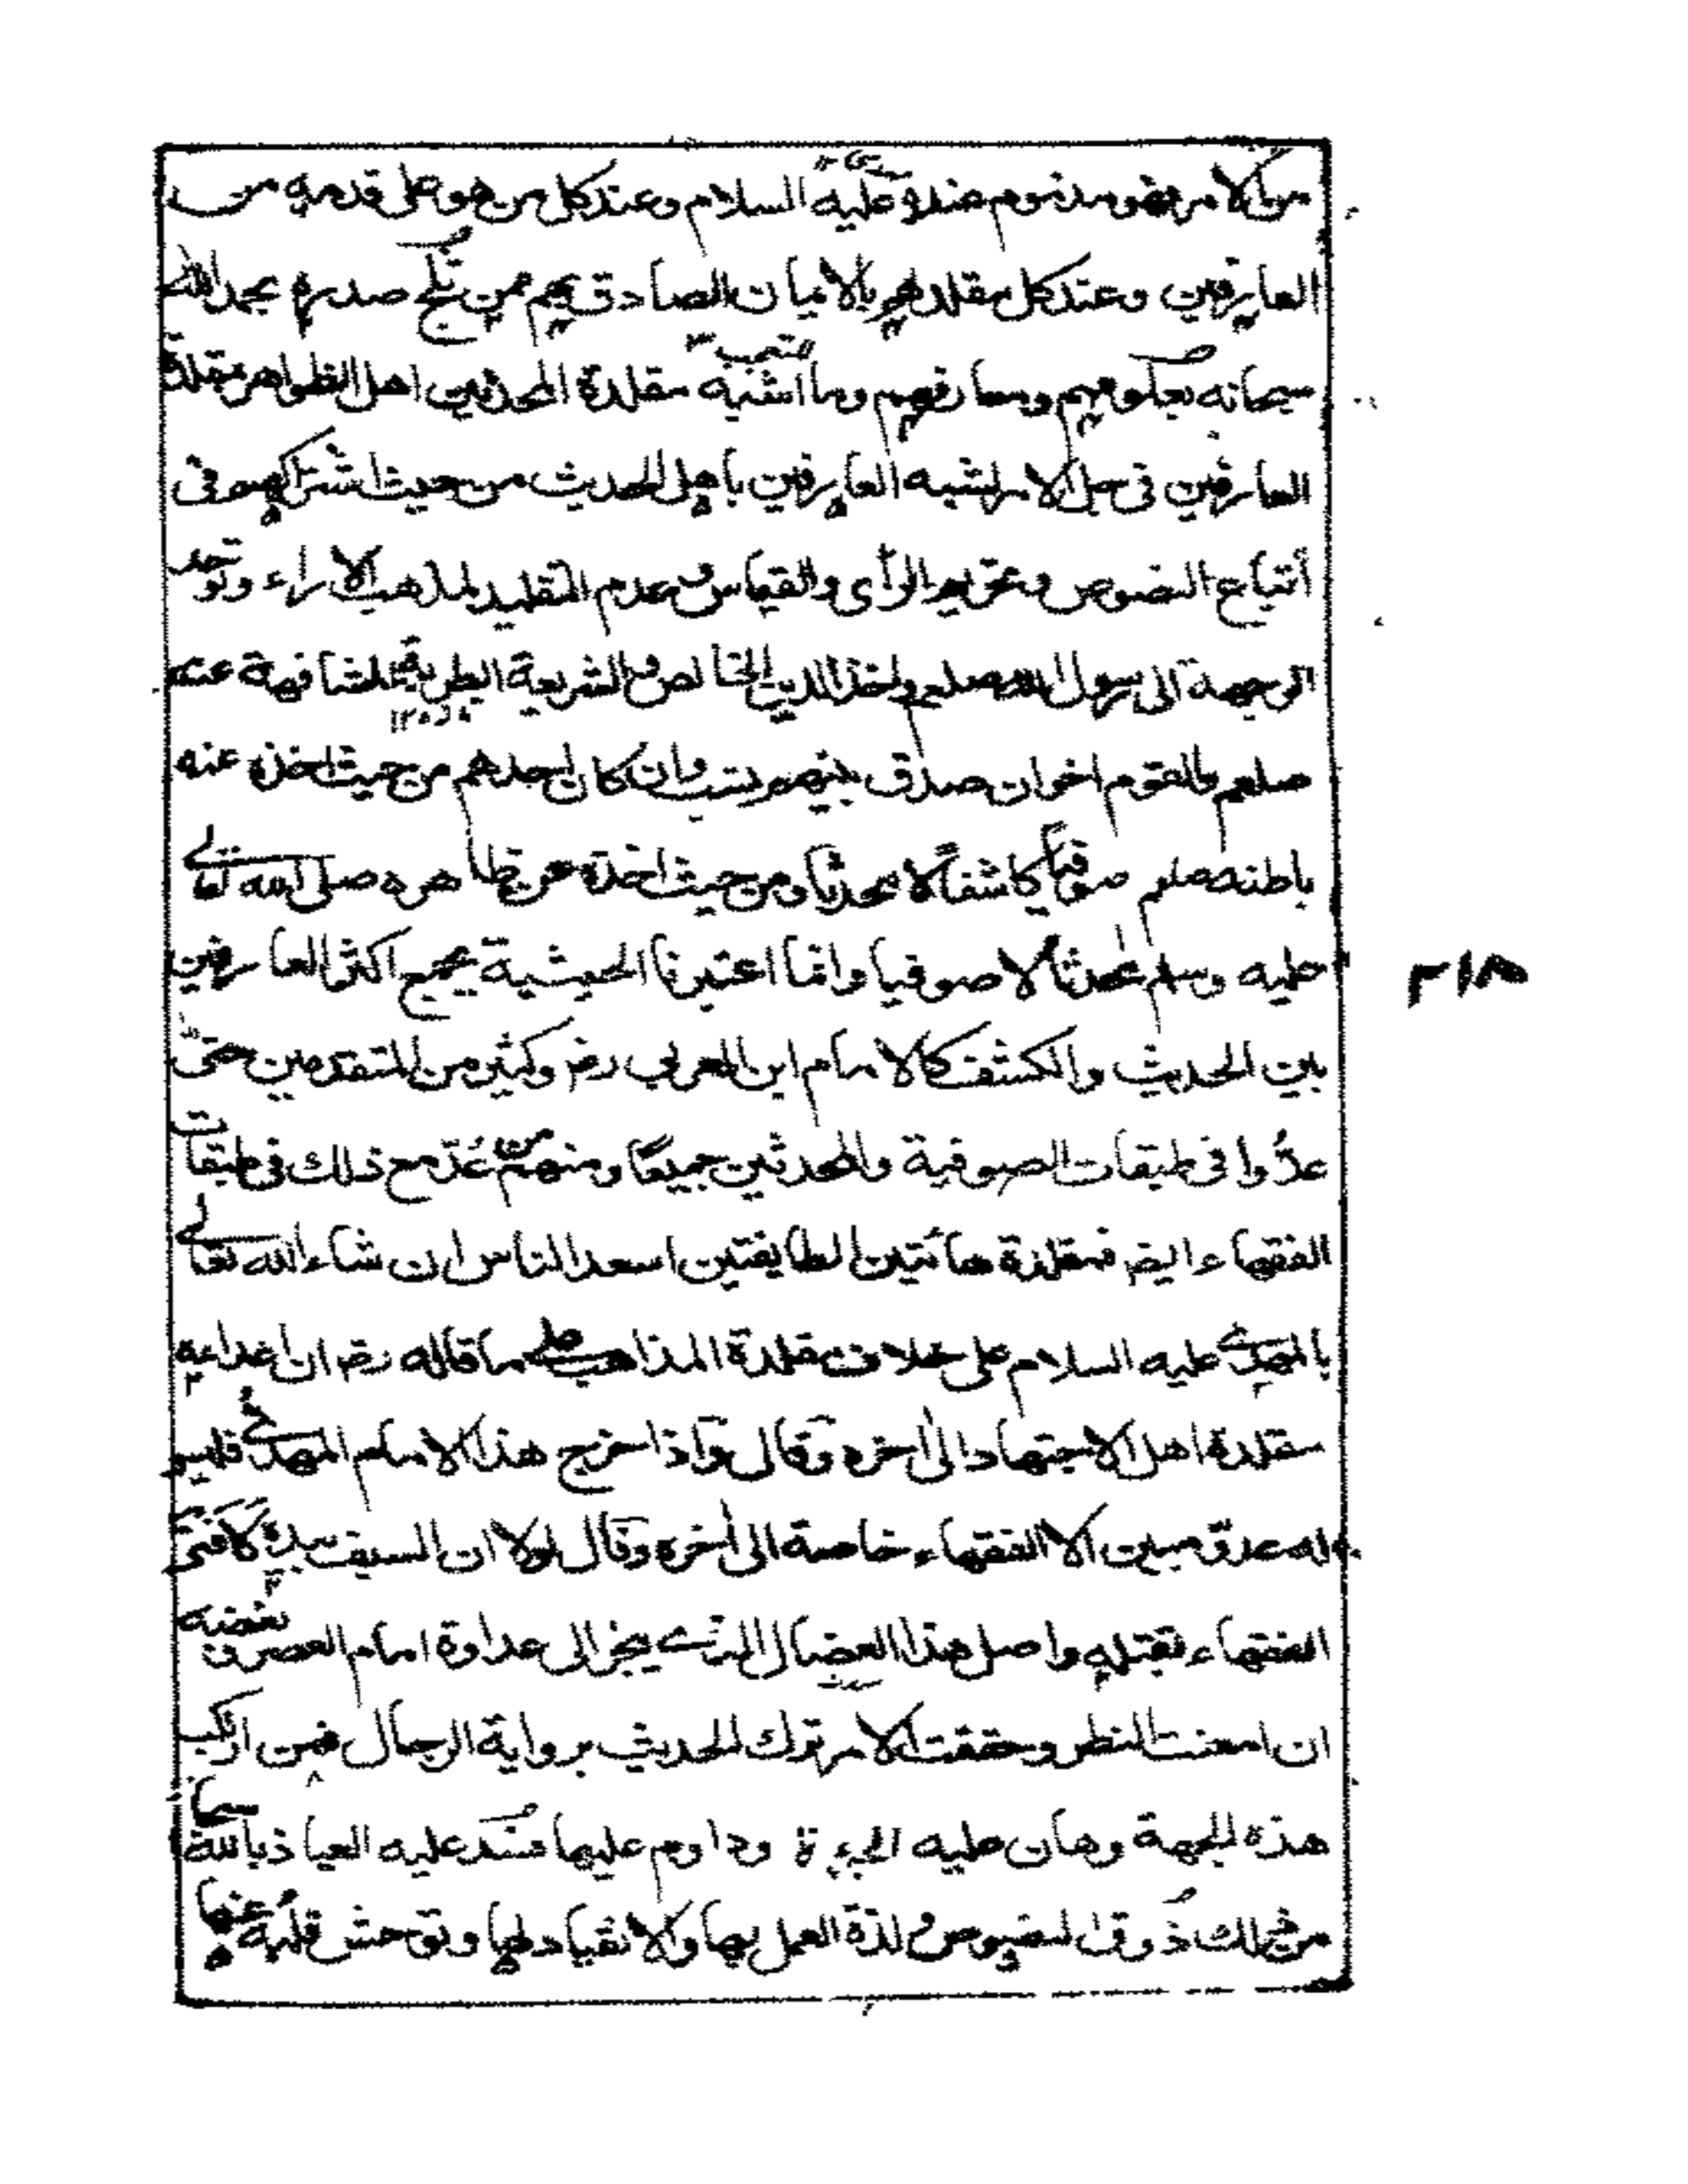 من الامر فهو مذموم عنده عليه السلام وعند كل من هو على قدمه من
العارفين وعند كل مقلدهم بالايمان الصادق بهم ممن ثلج صدره بحمد الله
سبحانه بعلومهم ومعارفهم وما اشبه مقلدة المحدثين اهل الظواهر بمقلدة
العارفين فى جل الامر لشبه العارفين باهل الحديث من حيث اشتراكهم فى
أتباع النصوص وتحريم الرأى والقياس وعدم التقليد لمذهب الاراء وتوحد
الوجهة الى رسول الله صلعم واخذ الدين الخالص والشريعة المشافهة عنه
صلعم والقوم اخوان صدق بينهم نسب وان كان احدهم من حيث اخذه عنه
باطنه صلعم صوفيا كاشفا لا محدثا ومن حيث اخذه عن ظاهره صلى الله تعالى
عليه وسلم محدثا لا صوفيا وانما اعتبرنا الحيثية لجمع اكثر العارفين
بين الحديث والكشف كالامام ابن العربي رض وكثير من المتقدمين حتى
عدُّوا فى طبقات الصوفية والمحدثين جميعًا ومنهم من عُدّ مع ذلك فى طبقات
الفقهاء ايض فمقلدة هاتين الطايفتين اسعد الناس ان شاء الله تعالى
بالمهدى عليه السلام على خلاف مقلدة المذاهب على ما قاله رض ان اعداءه
مقلدة اهل الاجتهاد الى أخره وقال واذا خرج هذا الامام المهدى فليس
له عدو مبين الا الفقهاء خاصة الى أخره وقال لولا ان السيف بيده لافتى
الفقهاء بقتله واصل هذا العضال الذى يجر الى عداوة امام العصر وبغضه
ان امعنت النظر وحققت الامر ترك الحديث برواية الرجال فمن ارتكب
هذه الجهة وهان عليه وداوم عليها عليه العياذ بالله سبحانه
ذوق النصوص ولذة العمل بها والانقياد لها وتوحش قلبه عنها
٣١٨